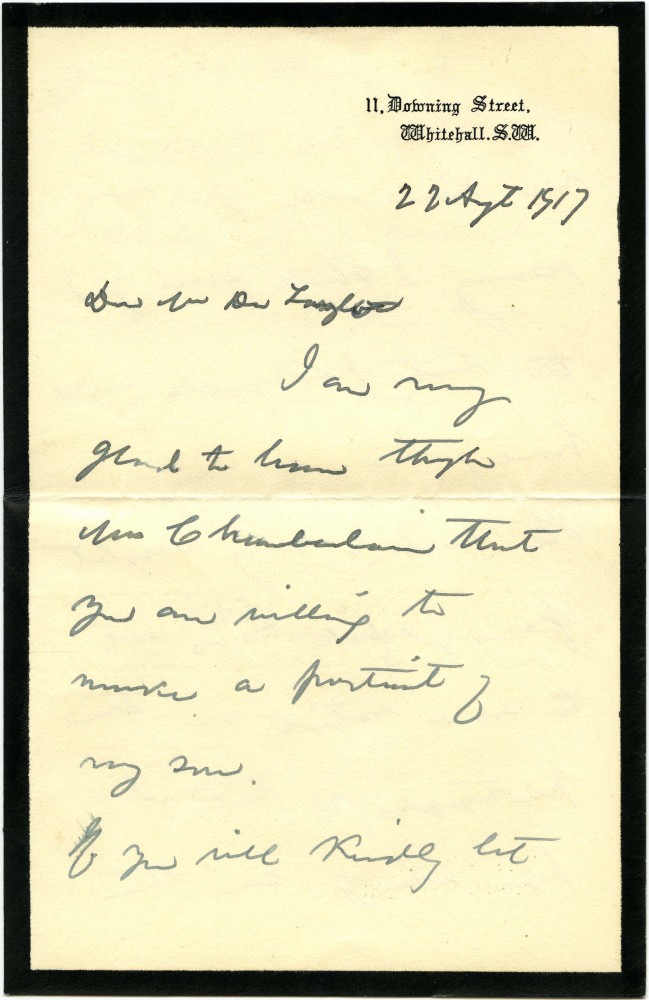 11, Downing Street,
Whitehall. S.W.
22 Augt 1917
Dear Mr De Laszlo
I am very
glad to know through
Mrs Chamberlain that
you are willing to
make a portrait of
my son.
If you will kindly let